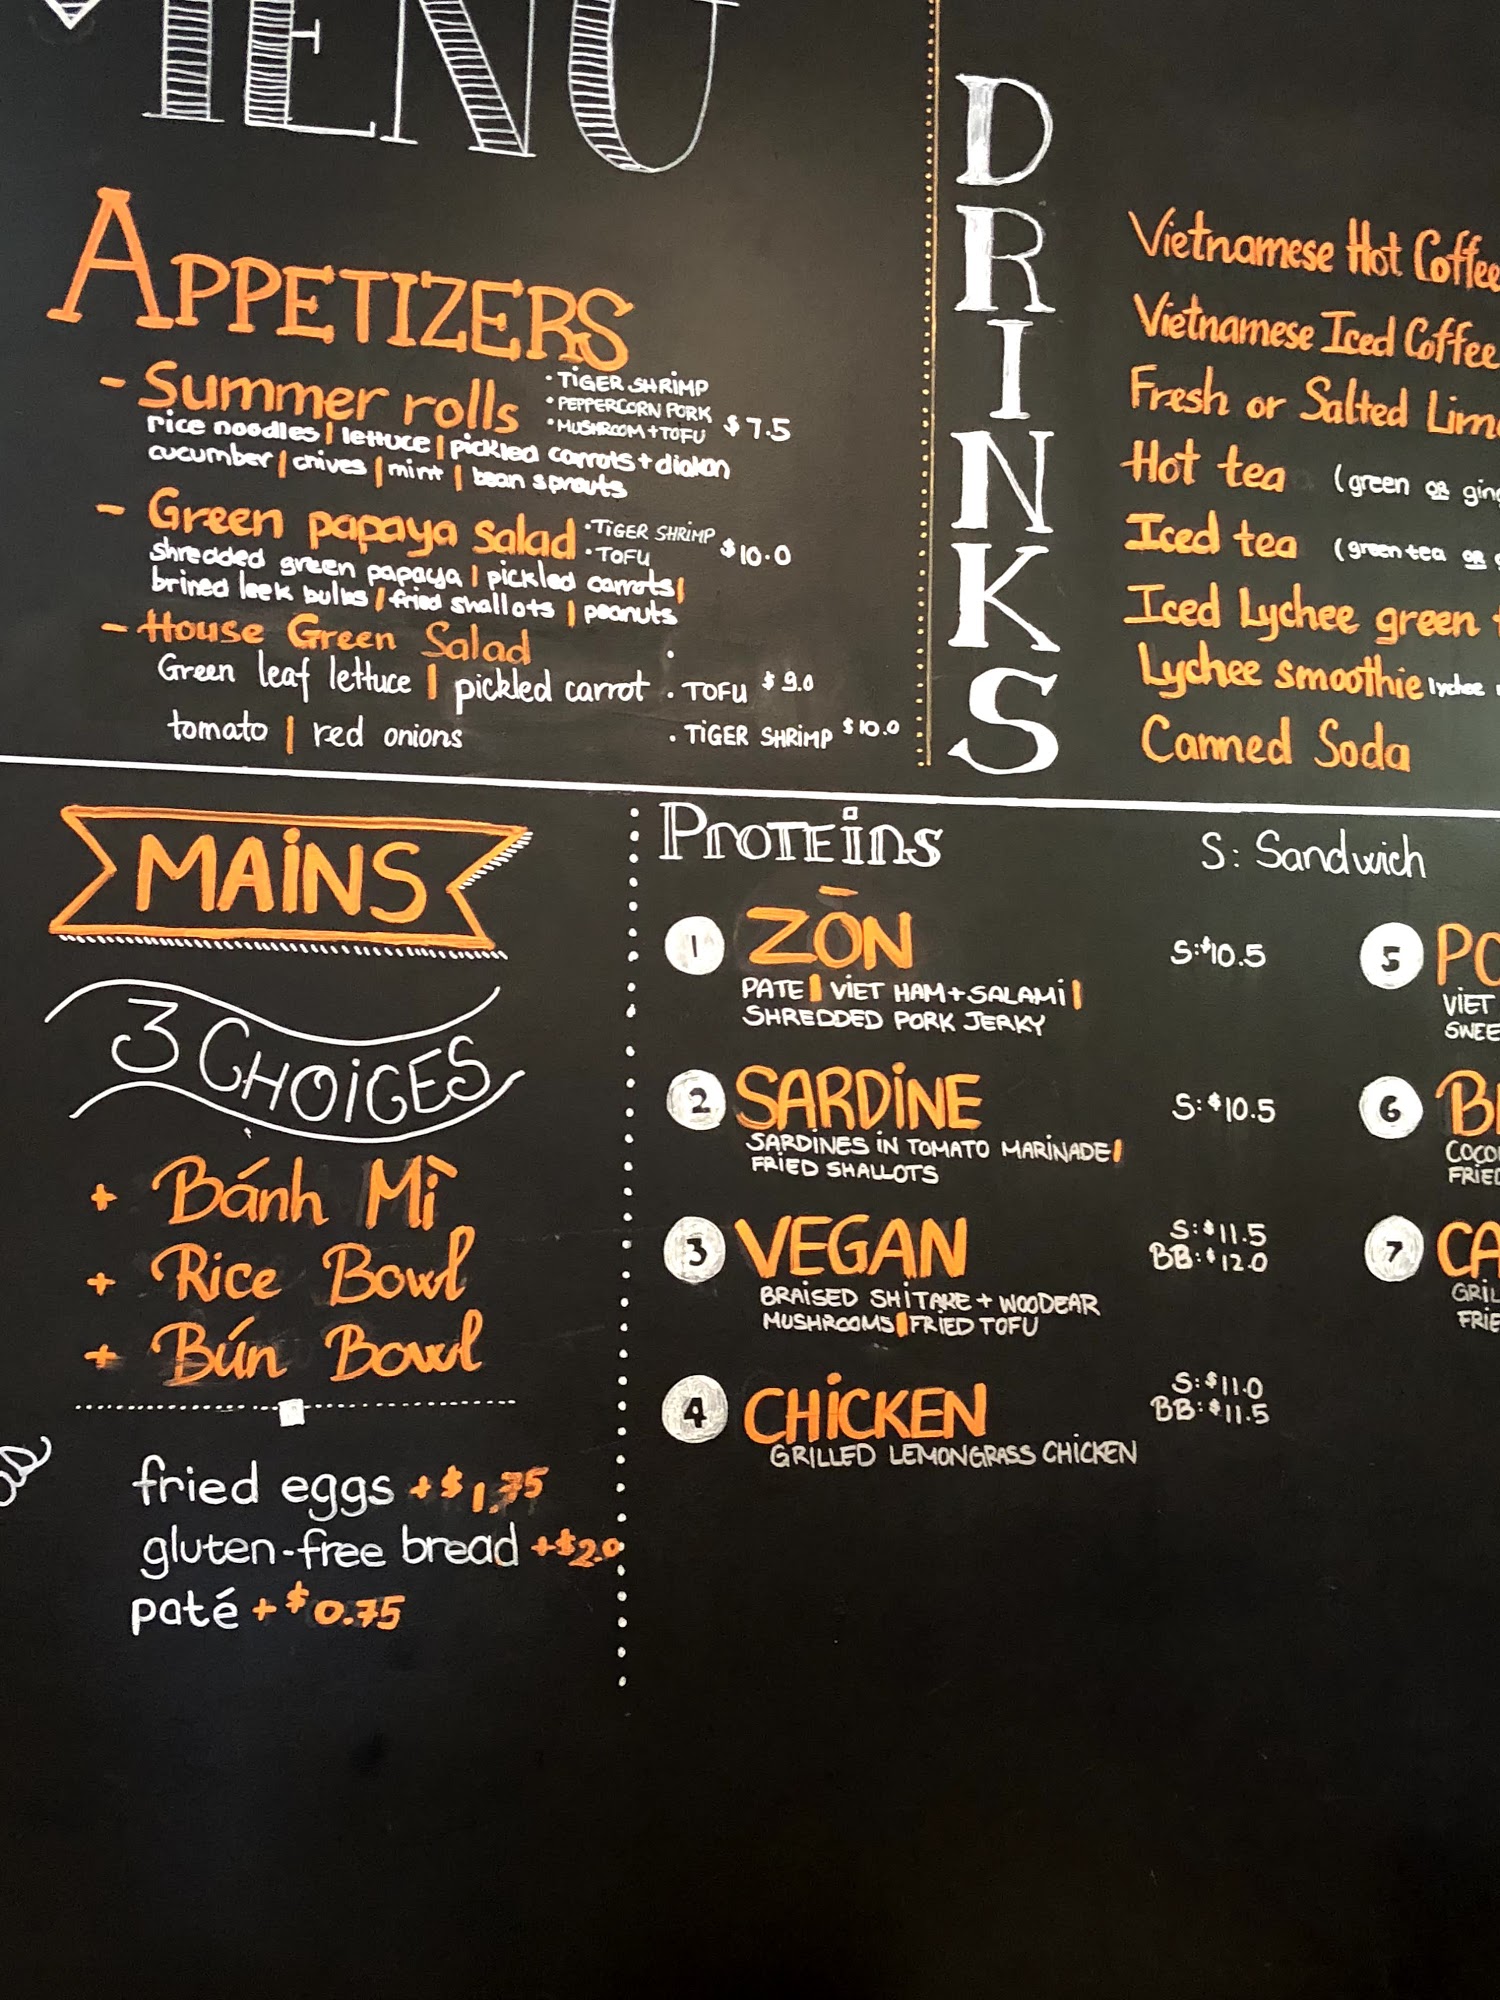 MENU
APPETIZERS
- Summer rolls
• TIGER SHRIMP
• PEPPERCORN PORK
• MUSHROOM + TOFU
$7.5
rice noodles | lettuce | pickled carrots + diakon
cucumber | chives | mint | bean sprouts
- Green papaya salad
• TIGER SHRIMP
• TOFU
$10.0
shredded green papaya | pickled carrots |
brined leek bulbs | fried shallots | peanuts
- House Green Salad
Green leaf lettuce | pickled carrot • TOFU $9.0
tomato | red onions • TIGER SHRIMP $10.0
DRINKS
Vietnamese Hot Coffee
Vietnamese Iced Coffee
Fresh or Salted
Hot tea (green or
Iced tea (green tea or
Iced Lychee green
Lychee smoothie lychee
Canned Soda
MAINS
3 CHOICES
+ Bánh Mì
+ Rice Bowl
+ Bún Bowl
fried eggs +$1.75
gluten-free bread +$2.0
paté +$0.75
Proteins
S: Sandwich
1 ZŌN S:$10.5
PATE | VIET HAM + SALAMI |
SHREDDED PORK JERKY
2 SARDINE S:$10.5
SARDINES IN TOMATO MARINADE |
FRIED SHALLOTS
3 VEGAN S:$11.5
BB:$12.0
BRAISED SHITAKE + WOODEAR
MUSHROOMS | FRIED TOFU
4 CHICKEN S:$11.0
BB:$11.5
GRILLED LEMONGRASS CHICKEN
5
VIET
6
7